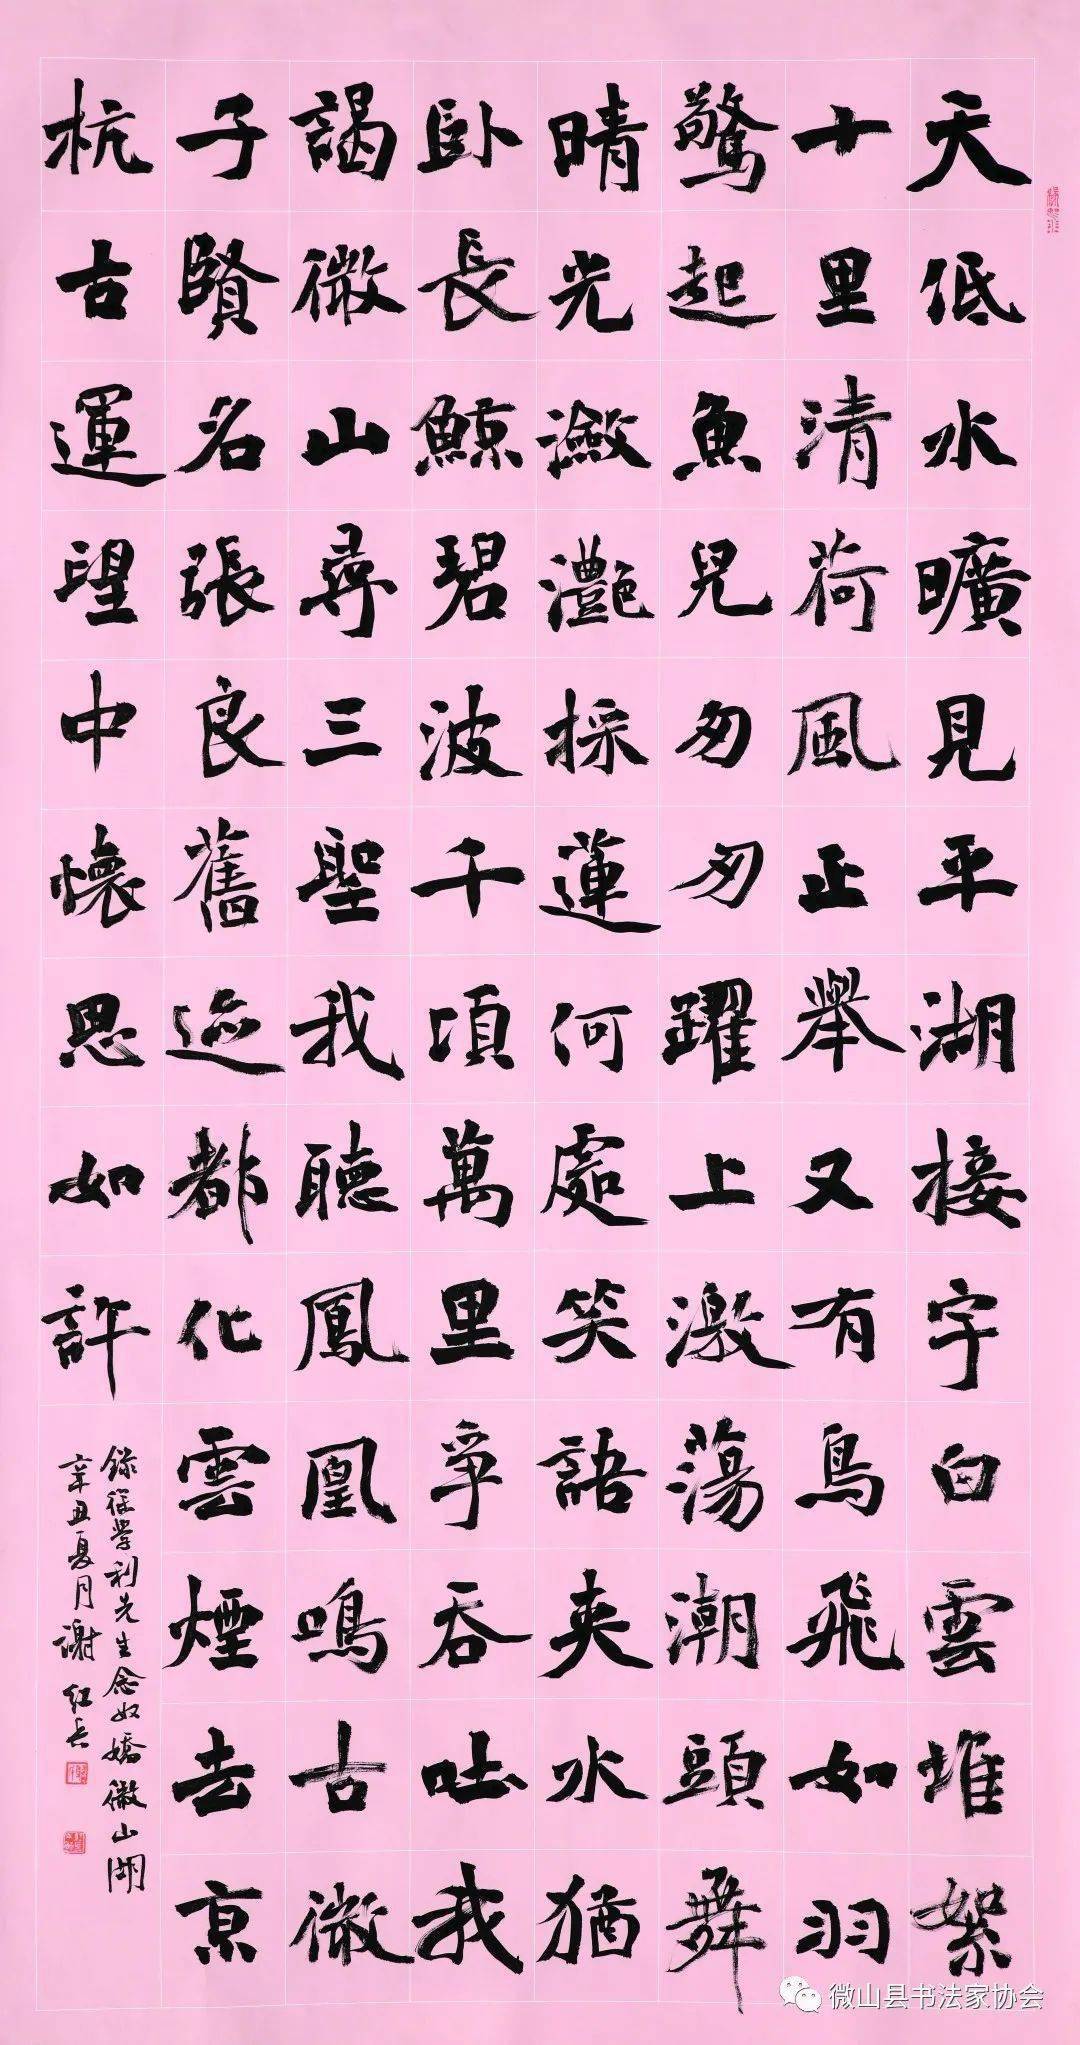 天低水曠見平湖接宇白雲堆絮
十里清荷風正舉又有鳥飛如羽
驚起魚兒匆匆躍上激蕩潮頭舞
晴光瀲灩採蓮何處笑語夾水猶
卧長鯨碧波千頃萬里爭吞吐我
謁微山尋三聖我聽鳳凰鳴古微
子賢名張良舊迹都化雲煙去京
杭古運望中懷思如許
錄徐學利先生念奴嬌微山湖
辛丑夏月謝紅兵
微山县书法家协会